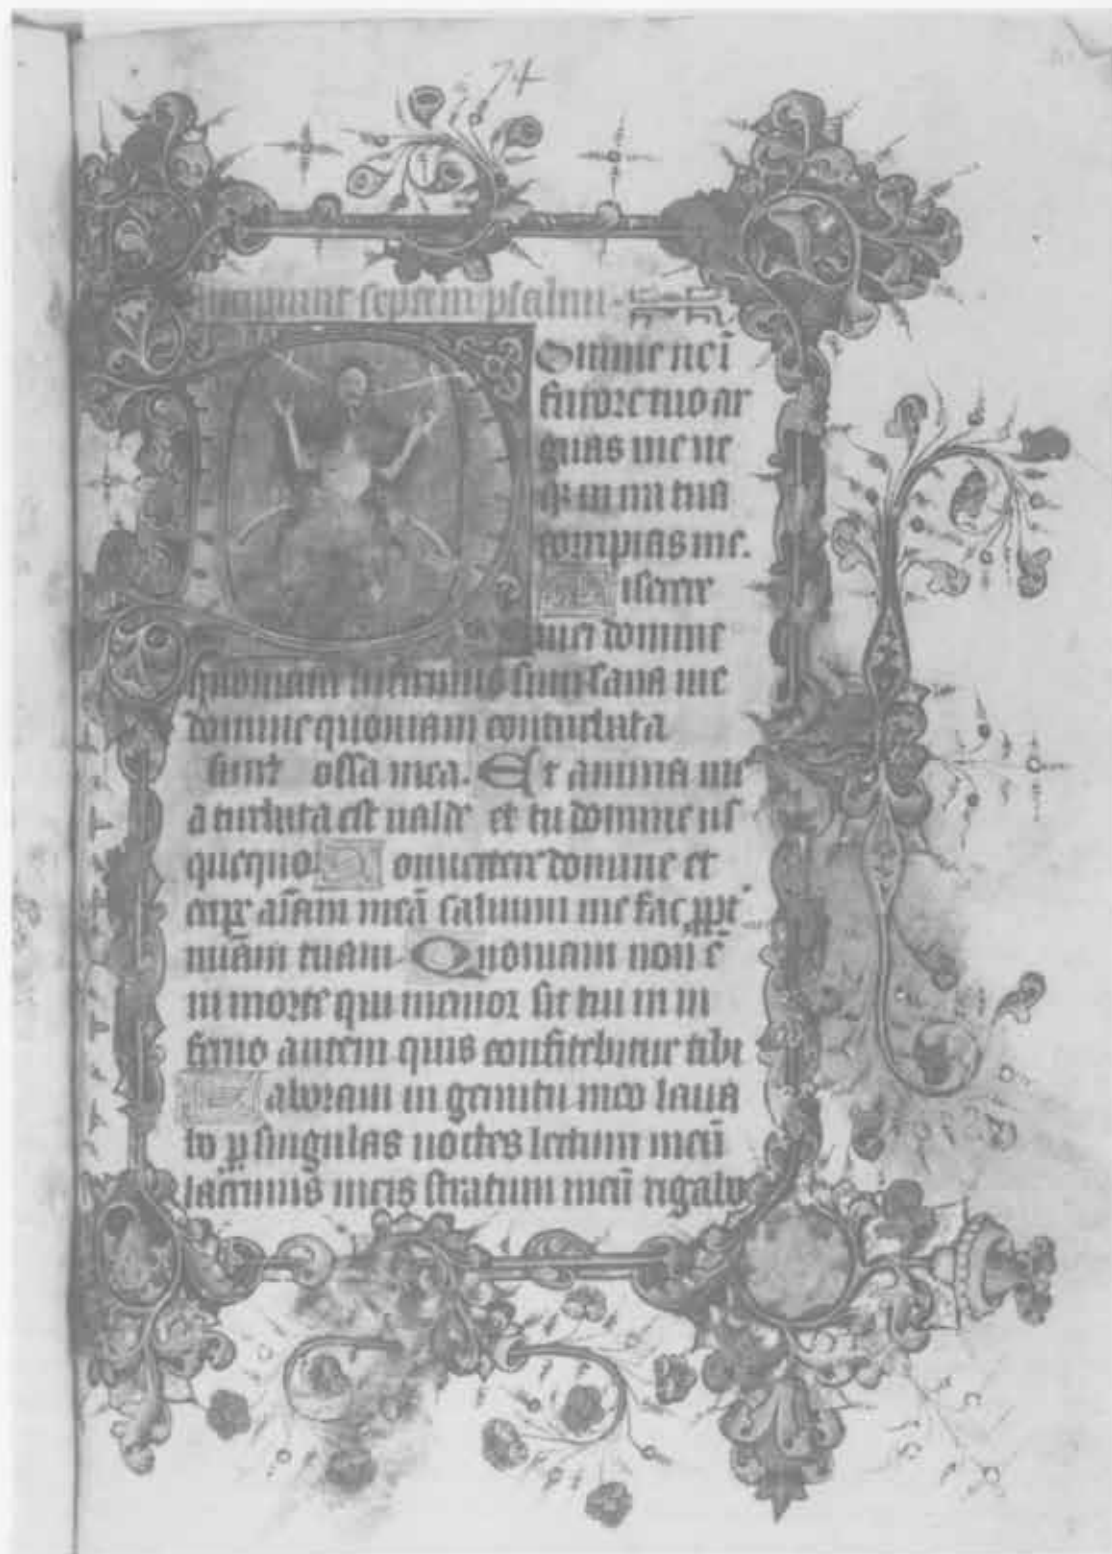 74
Incipiunt septem psalmi
Domine ne ĩ
furore tuo ar
guas me ne
qȝ in ira tua
corripias me.
Miserere
mei domine
quoniam infirmus sum sana me
domine quoniam conturbata
sunt ossa mea. Et anima me
a turbata est ualde et tu domine us
quequo Conuertere domine et
eripe aĩam meã saluum me fac ꝓpt̃
miãm tuam Quoniam non ẽ
in morte qui memor sit tui in in
ferno autem quis confitebitur tibi
Laboraui in gemitu meo laua
bo ꝑ singulas noctes lectum meũ
lacrimis meis stratum meũ rigabo